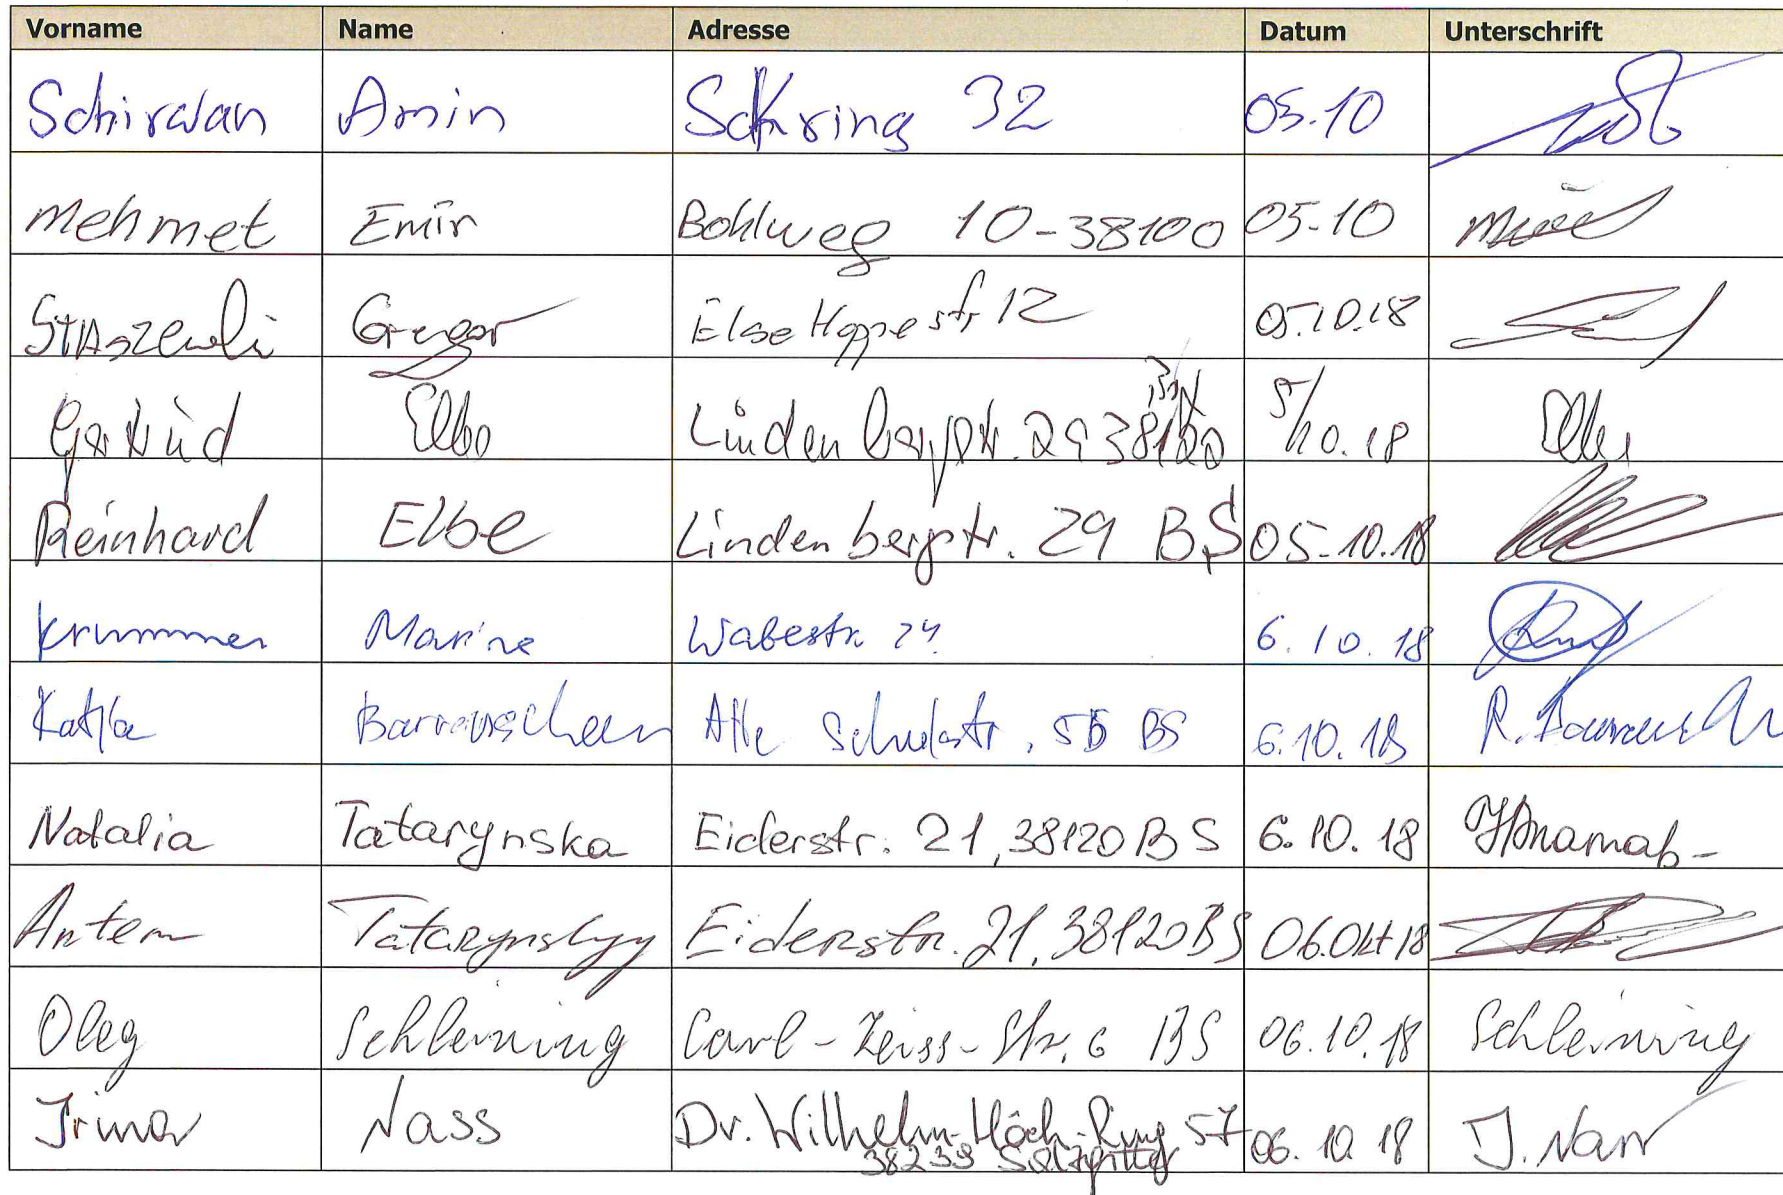 Vorname Name Adresse Datum Unterschrift
Schirwan Amin Sackring 32 05.10
Mehmet Emir Bohlweg 10-38100 05.10
Gregor Else Hoppestr 12 05.10.18
Elbe Lindenbergstr. 29 38120 5/10.18 Elbe
Reinhard Elbe Lindenbergstr. 29 BS 05.10.18
Krummer Marine Wabestr. 24 6.10.18
Katja Alte Schulstr. 5B BS 6.10.18
Natalia Tatarynska Eiderstr. 21, 38120 BS 6.10.18
Artem Tatarynskyy Eiderstr. 21, 38120 BS 06.Okt 18
Oleg Schleining Carl-Zeiss-Str. 6 BS 06.10.18 Schleining
Irina Nass Dr. Wilhelm-Höch-Ring 57 06.10.18 I. Nass
38239 Salzgitter